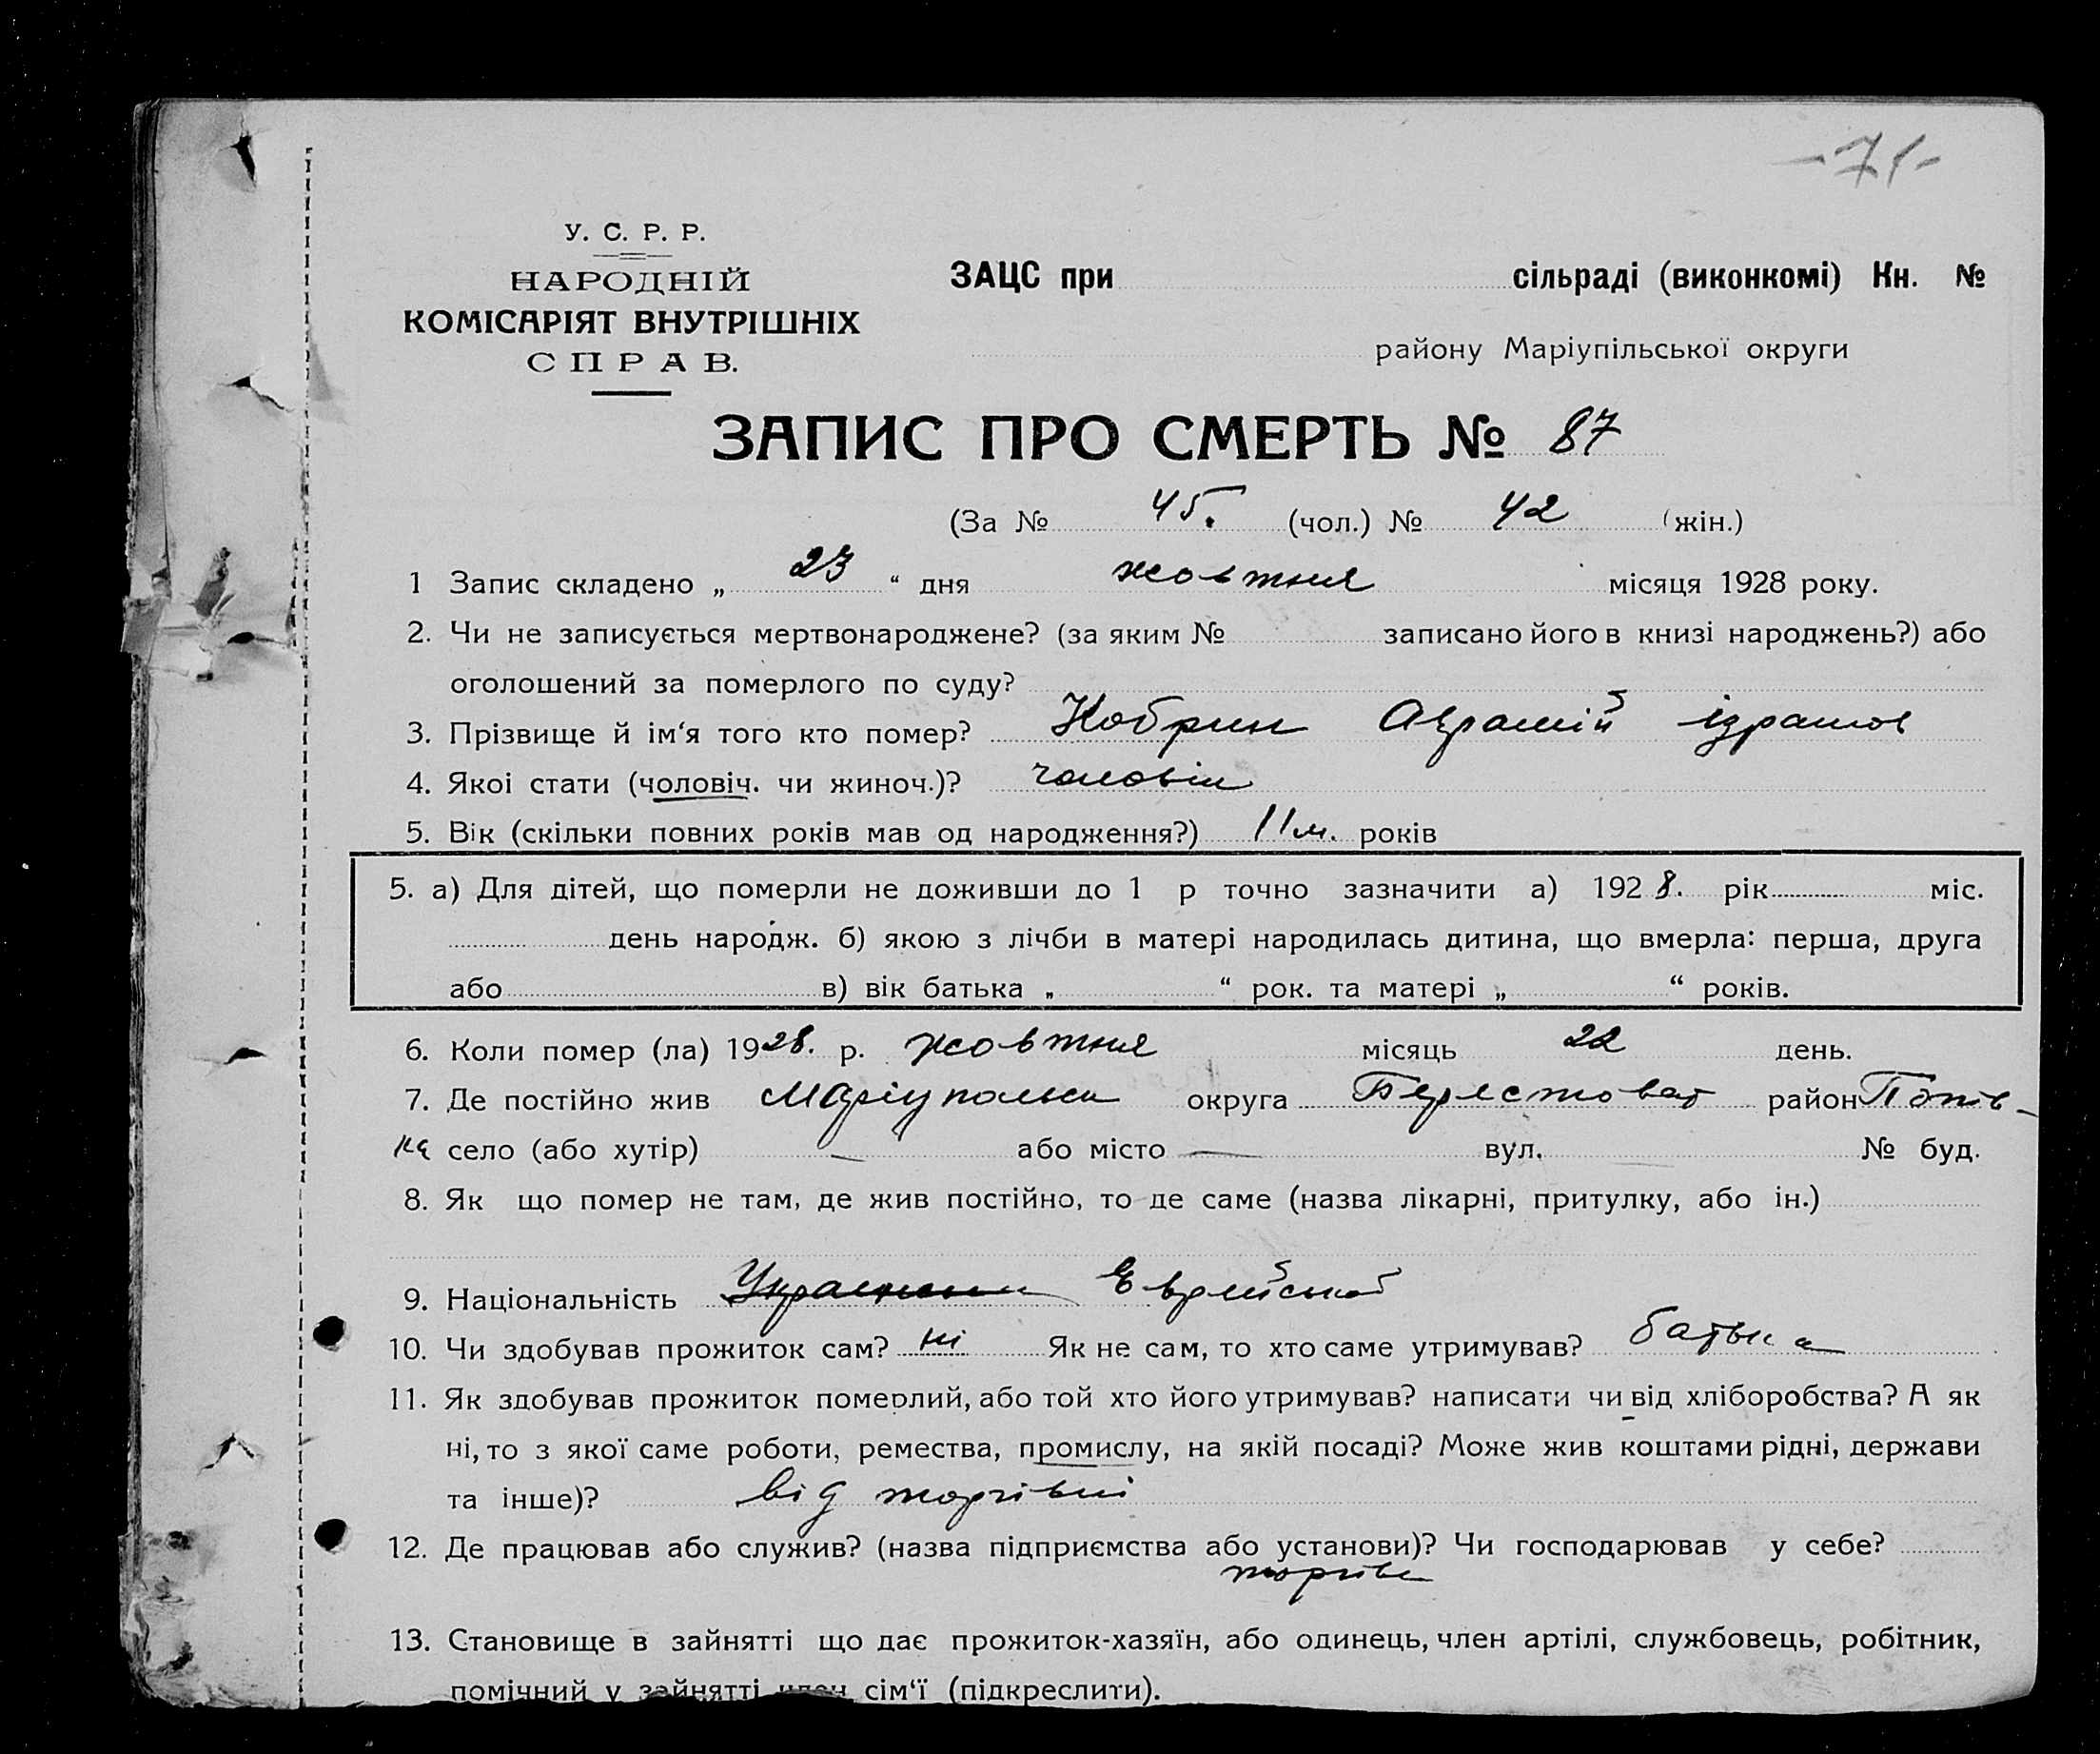 -71-
У. С. Р. Р.
НАРОДНІЙ
КОМІСАРІЯТ ВНУТРІШНІХ
СПРАВ.
ЗАЦС при сільраді (виконкомі) Кн. №
району Маріупільської округи
ЗАПИС ПРО СМЕРТЬ № 87
(За № 45. (чол.) № 42 (жін.)
1 Запис складено „ 23 “ дня жовтня місяця 1928 року.
2. Чи не записується мертвонароджене? (за яким № записано його в книзі народжень?) або
оголошений за померлого по суду?
3. Прізвище й ім‘я того кто помер? Кобрин
4. Якоі стати (чоловіч. чи жиноч.)? чоловік
5. Вік (скільки повних років мав од народження?) 11 м. років
5. а) Для дітей, що померли не доживши до 1 р точно зазначити а) 1928. рік міс.
день народж. б) якою з лічби в матері народилась дитина, що вмерла: перша, друга
або в) вік батька „ “ рок. та матері „ “ років.
6. Коли помер (ла) 1928. р. жовтня місяць 22 день.
7. Де постійно жив Маріупольськ округа Берестоват район Попів-
ка село (або хутір) — або місто — вул. № буд.
8. Як що помер не там, де жив постійно, то де саме (назва лікарні, притулку, або ін.)
9. Національність Еврейської
10. Чи здобував прожиток сам? ні Як не сам, то хто саме утримував? батька
11. Як здобував прожиток померлий, або той хто його утримував? написати чи від хліборобства? А як
ні, то з якої саме роботи, ремества, промислу, на якій посаді? Може жив коштами рідні, держави
та інше)? від торгівлі
12. Де працював або служив? (назва підприємства або установи)? Чи господарював у себе?
13. Становище в зайнятті що дає прожиток-хазяїн, або одинець, член артілі, службовець, робітник,
помічний у зайнятті член сім‘ї (підкреслити).